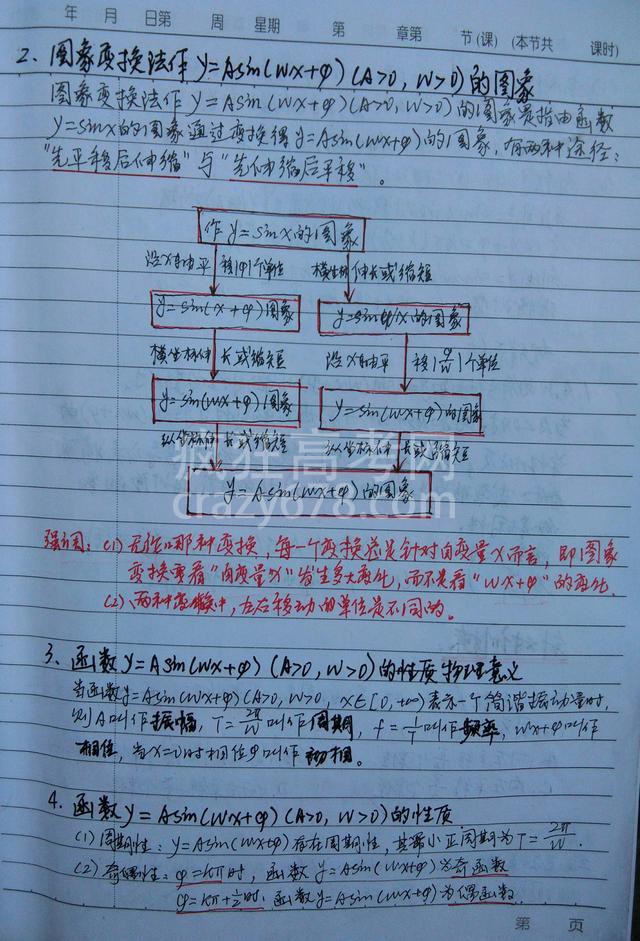 年 月 日第 周 星期 第 章第 节(课) (本节共 课时)
2、图象变换法作y=Asin(wx+φ)(A>0,w>0)的图象
图象变换法作y=Asin(wx+φ)(A>0,w>0)的图象是指由函数
y=sinx的图象通过变换得y=Asin(wx+φ)的图象,有两种途径:
"先平移后伸缩"与"先伸缩后平移"。
作y=sinx的图象
沿x轴平移|φ|个单位 横坐标伸长或缩短
y=sin(x+φ)图象 y=sinφx的图象
横坐标伸长或缩短 沿x轴平移|φ/w|个单位
y=sin(wx+φ)图象 y=sin(wx+φ)的图象
纵坐标伸长或缩短 纵坐标伸长或缩短
y=Asin(wx+φ)的图象
疯狂高考网
crazy678.com
强调:(1)无论哪种变换,每一个变换总是针对自变量x而言,即图象
变换要看"自变量x"发生多大变化,而不是看"wx+φ"的变化.
(2)、两种变换中,左右移动的单位是不同的。
3、函数y=Asin(wx+φ)(A>0,w>0)的性质物理意义
当函数y=Asin(wx+φ)(A>0,w>0,x∈[0,+∞)表示一个简谐振动量时,
则A叫作振幅,T=2π/w叫作周期,f=1/T叫作频率,wx+φ叫作
相位,当x=0时相位φ叫作初相。
4、函数y=Asin(wx+φ)(A>0,w>0)的性质
(1)周期性:y=Asin(wx+φ)存在周期性,其最小正周期为T=2π/w.
(2)奇偶性:φ=kπ时,函数y=Asin(wx+φ)为奇函数
φ=kπ+½时,函数y=Asin(wx+φ)为偶函数.
第 页